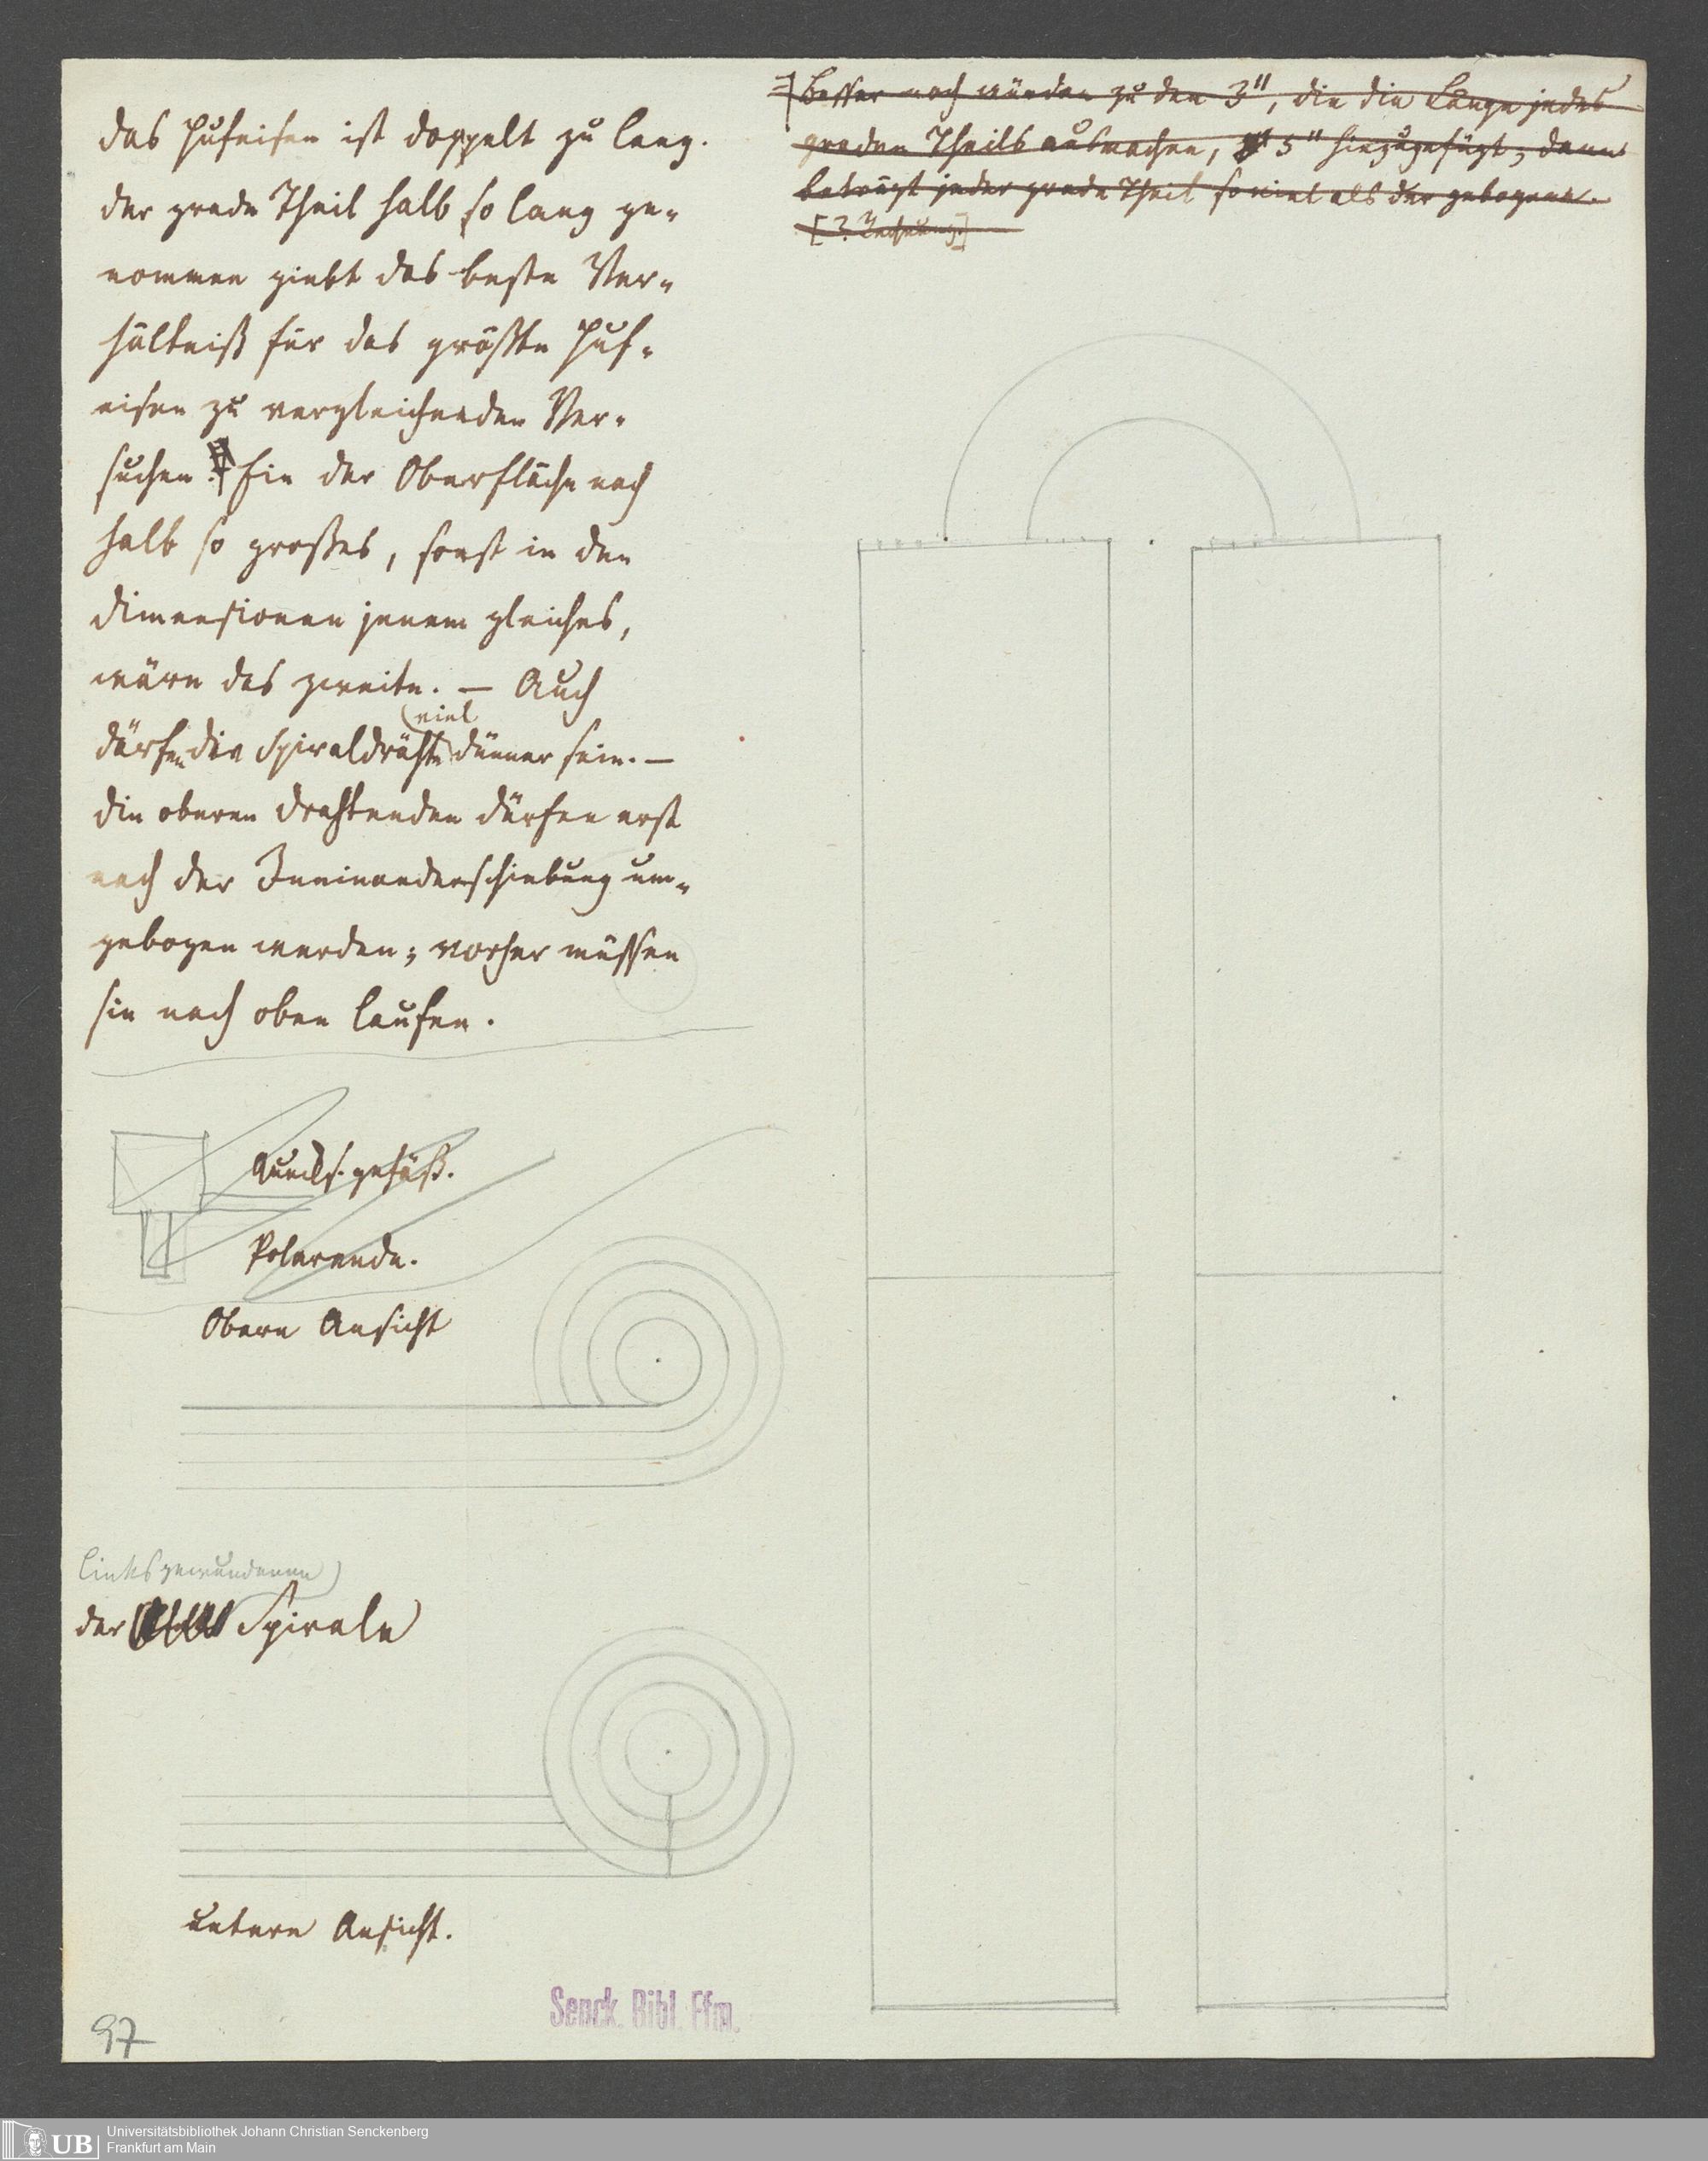 das Hufeisen ist doppelt zu lang.
der grade Theil halb so lang ge-
nommen giebt das beste Ver-
hältniß für das größte Huf-
eisen zu vergleichenden Ver-
suchen. Ein der Oberfläche nach
halb so großes, sonst in den
dimensionen jenem gleiches,
wäre das zweite. — Auch
viel
dürfen die Spiraldrähte dünner sein. —
die oberen Drahtenden dürfen erst
nach der Ineinanderschiebung um-
gebogen werden; vorher müssen
sie nach oben laufen.
Quecks. gefäß.
Polarende.
Obere Ansicht
linksgewundenen
der Spirale
untere Ansicht.
97
Senck. Bibl. Ffm.
besser noch würden zu den 3", die die Länge jedes
graden Theils ausmachen, 5" hinzugefügt; dann
beträgt jeder grade Theil so viel als der gebogene.
[3. Zeichnung.]
UB
Universitätsbibliothek Johann Christian Senckenberg
Frankfurt am Main